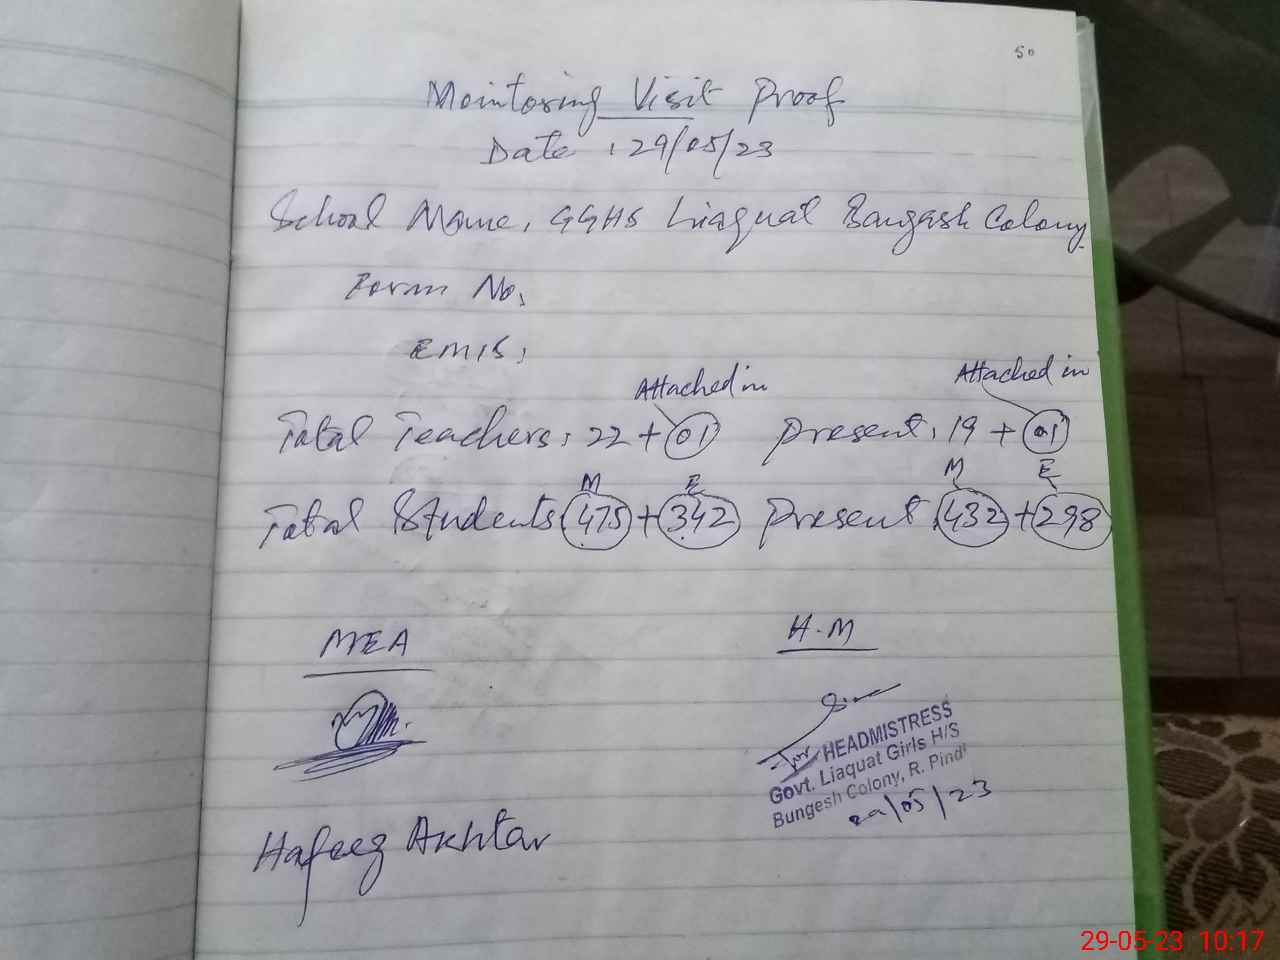 50
Monitoring Visit Proof
Date : 29/05/23
School Name, GGHS Liaquat Bangash Colony
Form No,
EMIS,
Attached in
Attached in
Total Teachers, 22 + 01 Present, 19 + 01
M E M E
Total Students 475 + 342 Present, 432 + 298
MEA
H.M
for HEADMISTRESS
Govt. Liaquat Girls H/S
Bungesh Colony, R. Pindi
29/05/23
Hafeez Akhtar
29-05-23 10:17